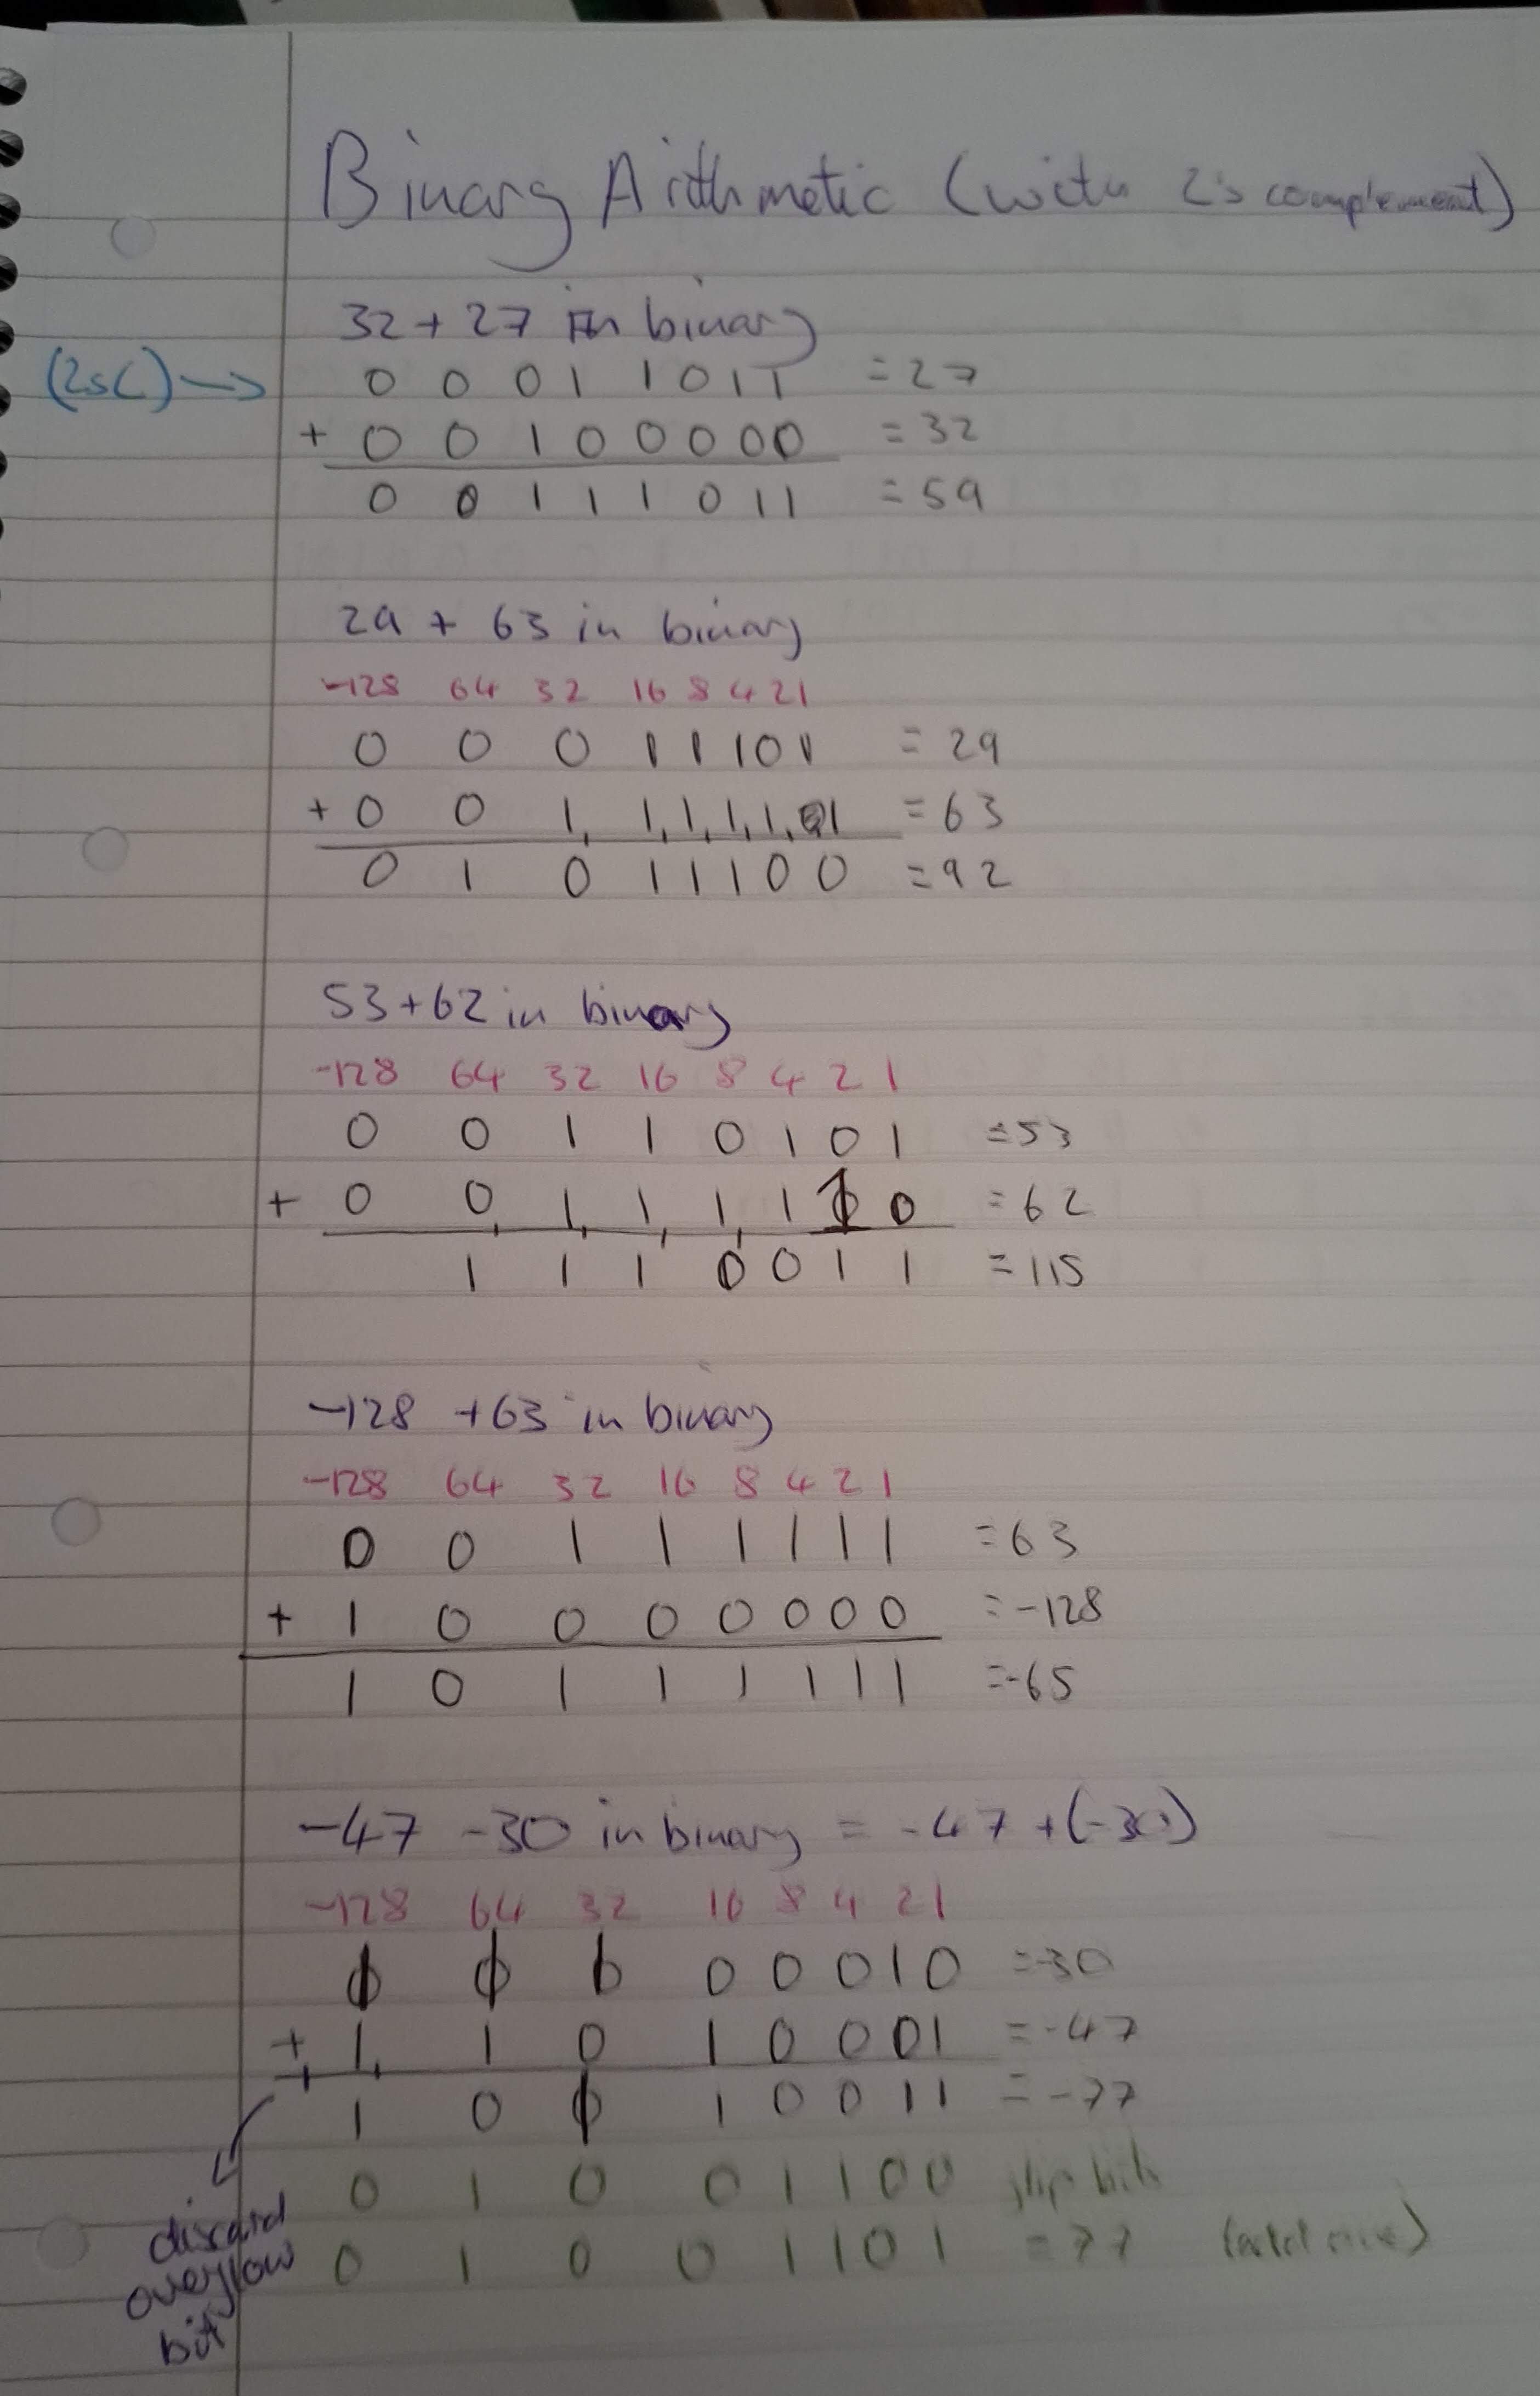 Binary Arithmetic (with 2's complement)
32 + 27 in binary
(2sC) → 0 0 0 1 1 0 1 1 = 27
+ 0 0 1 0 0 0 0 0 = 32
0 0 1 1 1 0 1 1 = 59
29 + 63 in binary
-128 64 32 16 8 4 2 1
0 0 0 1 1 1 0 1 = 29
+ 0 0 1 1 1 1 1 1 = 63
0 1 0 1 1 1 0 0 = 92
53 + 62 in binary
-128 64 32 16 8 4 2 1
0 0 1 1 0 1 0 1 = 53
+ 0 0 1 1 1 1 1 0 = 62
1 1 1 0 0 1 1 = 115
-128 +63 in binary
-128 64 32 16 8 4 2 1
0 0 1 1 1 1 1 1 = 63
+ 1 0 0 0 0 0 0 0 = -128
1 0 1 1 1 1 1 1 = -65
-47 -30 in binary = -47 + (-30)
-128 64 32 16 8 4 2 1
1 1 1 0 0 0 1 0 = -30
+ 1 1 0 1 0 0 0 1 = -47
1 0 1 1 0 0 1 1 = -77
0 1 0 0 1 1 0 0 flip bits
0 1 0 0 1 1 0 1 = 77 (add one)
discard
overflow
bit